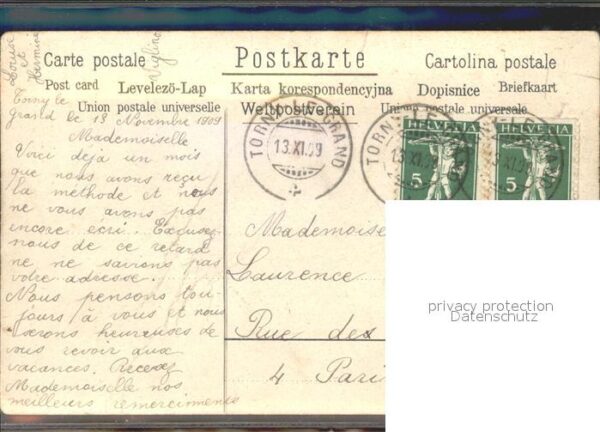 Louise et Hermine Viglino
Carte postale Postkarte Cartolina postale
Post card Levelezö-Lap Karta korespondencyjna Dopisnice Briefkaart
Union postale universelle Weltpostverein Union postale universale
Torny le
Grand le 13 Novembre 1909
Mademoiselle
Voici déja un mois
que nous avons reçu
la méthode et nous
ne vous avons pas
encore écri. Excusez-
nous de ce retard
ne ne savions pas
votre adresse.
Nous pensons tou-
jours à vous et nous
serons heureuses de
vous revoir aux
vacances. Recevez
Mademoiselle nos
meilleurs remerciements
TORNY-LE-GRAND
13.XI.09
TORNY-LE-GRAND
13.XI.09
HELVETIA
5
HELVETIA
5
Mademoise
Laurence
Rue des
4 Paris
privacy protection
Datenschutz